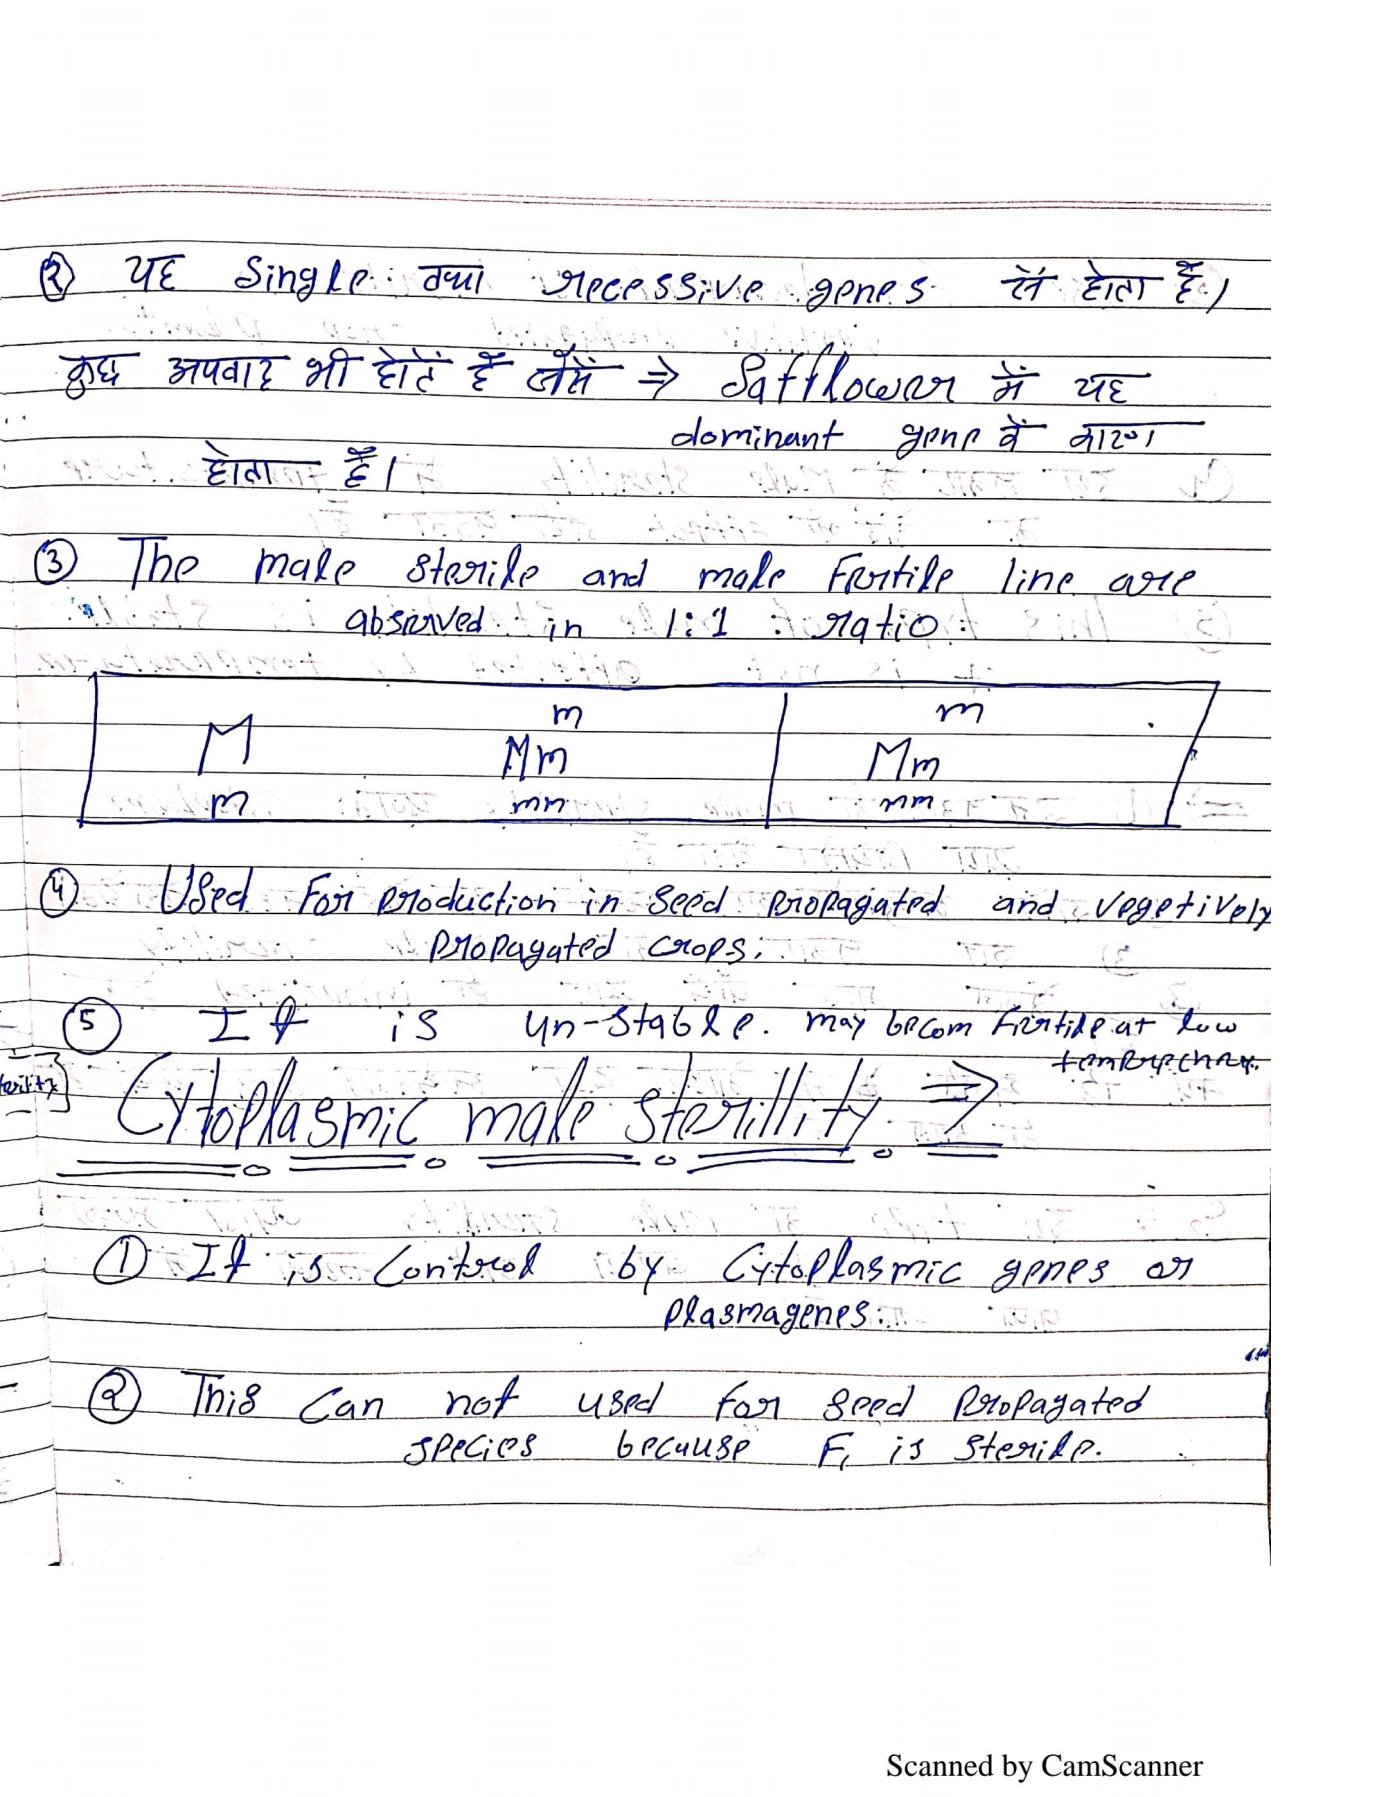 ② यह single तथा recessive genes से होता हैं।
कुछ अपवाद भी होतें हैं जैसें ⇒ Safflower में यह
dominant gene के कारण
होता हैं।
③ The male sterile and male Fertile line are
observed in 1:1 ratio:
M m m
Mm Mm
m mm mm
④ Used For production in seed propagated and vegetively
propagated crops.
⑤ It is un-stable. may becom Fertile at low
Cytoplasmic male sterillity ⇒
① It is Control by Cytoplasmic genes or
plasmagenes.
② This Can not used for seed propagated
species because F1 is sterile.
Scanned by CamScanner